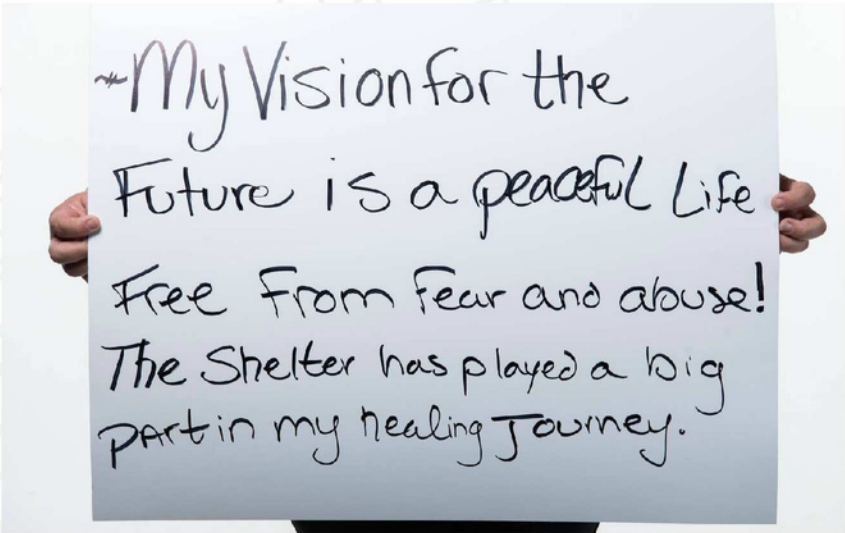 ~My Vision for the
Future is a peaceful Life
Free From Fear and abuse!
The Shelter has played a big
part in my healing Journey.